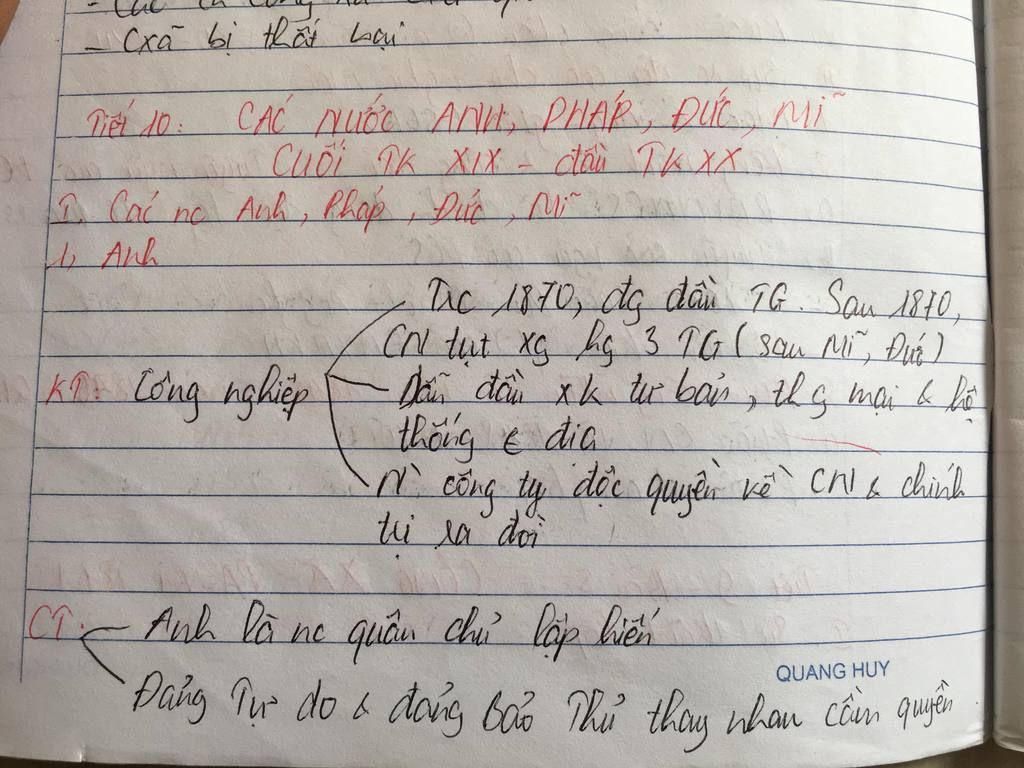 - Cxã bị thất bại
Tiết 10: CÁC NƯỚC ANH, PHÁP, ĐỨC, MĨ
CUỐI TK XIX - đầu TK XX
I, Các nc Anh, Pháp, Đức, Mĩ
1, Anh
Trc 1870, đg đầu TG. Sau 1870,
CN tụt xg hg 3 TG (sau Mĩ, Đức)
KT: Công nghiệp
Dẫn đầu xk tư bản, thg mại & hệ
thống € địa
N` công ty độc quyền về CN & chính
trị ra đời
CT:
Anh là nc quân chủ lập hiến
Đảng Tự do & đảng Bảo Thủ thay nhau cầm quyền
QUANG HUY